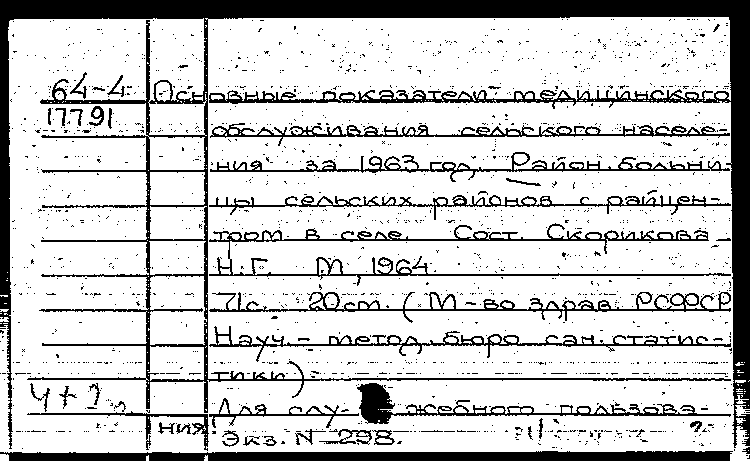 64-4 Основные показатели медицинского
17791
обслуживания сельского населе-
ния за 1963 год. Район. больни-
цы сельских районов с райцен-
тром в селе. Сост. Скорикова
Н.Г. М., 1964.
71с. 20см. (М-во здрав. РСФСР
Науч.-метод. бюро сан. статис-
тики).
Для слу-жебного пользова-
ния! Экз. N 298.